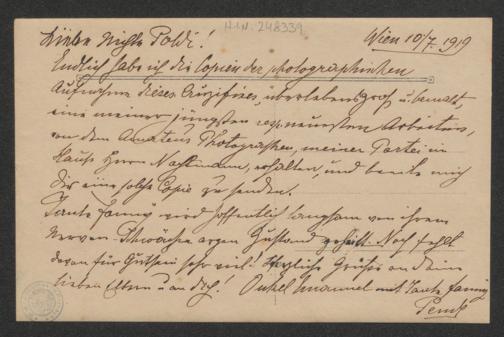 H.I.N. 248339
Liebe Nichte Poldi! Wien 10/7. 1919
Endlich habe ich die Copien der photographischen
Aufnahme dieses Crucifixes, überlebensgroß u. bemalt,
eine meiner jüngsten resp. neuesten Arbeiten,
von dem Amateur Photographen, meiner Partei im
Hause Herrn Nachtmann, erhalten, und beeile mich
Dir eine solche Copie zu senden.
Tante Fanny wird hoffentlich langsam von ihrem
Nerven-Schwäche argen Zustand geheilt. Noch fehlt
davon für Gutsein sehr viel! Herzliche Grüße an Deine
lieben Eltern u. an Dich! Onkel Emanuel mit Tante Fanny
Pendl